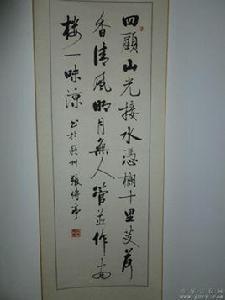 四顧山光接水憑欄十里芰荷
香清風明月無人管並作南
樓一味涼 书於 州 張